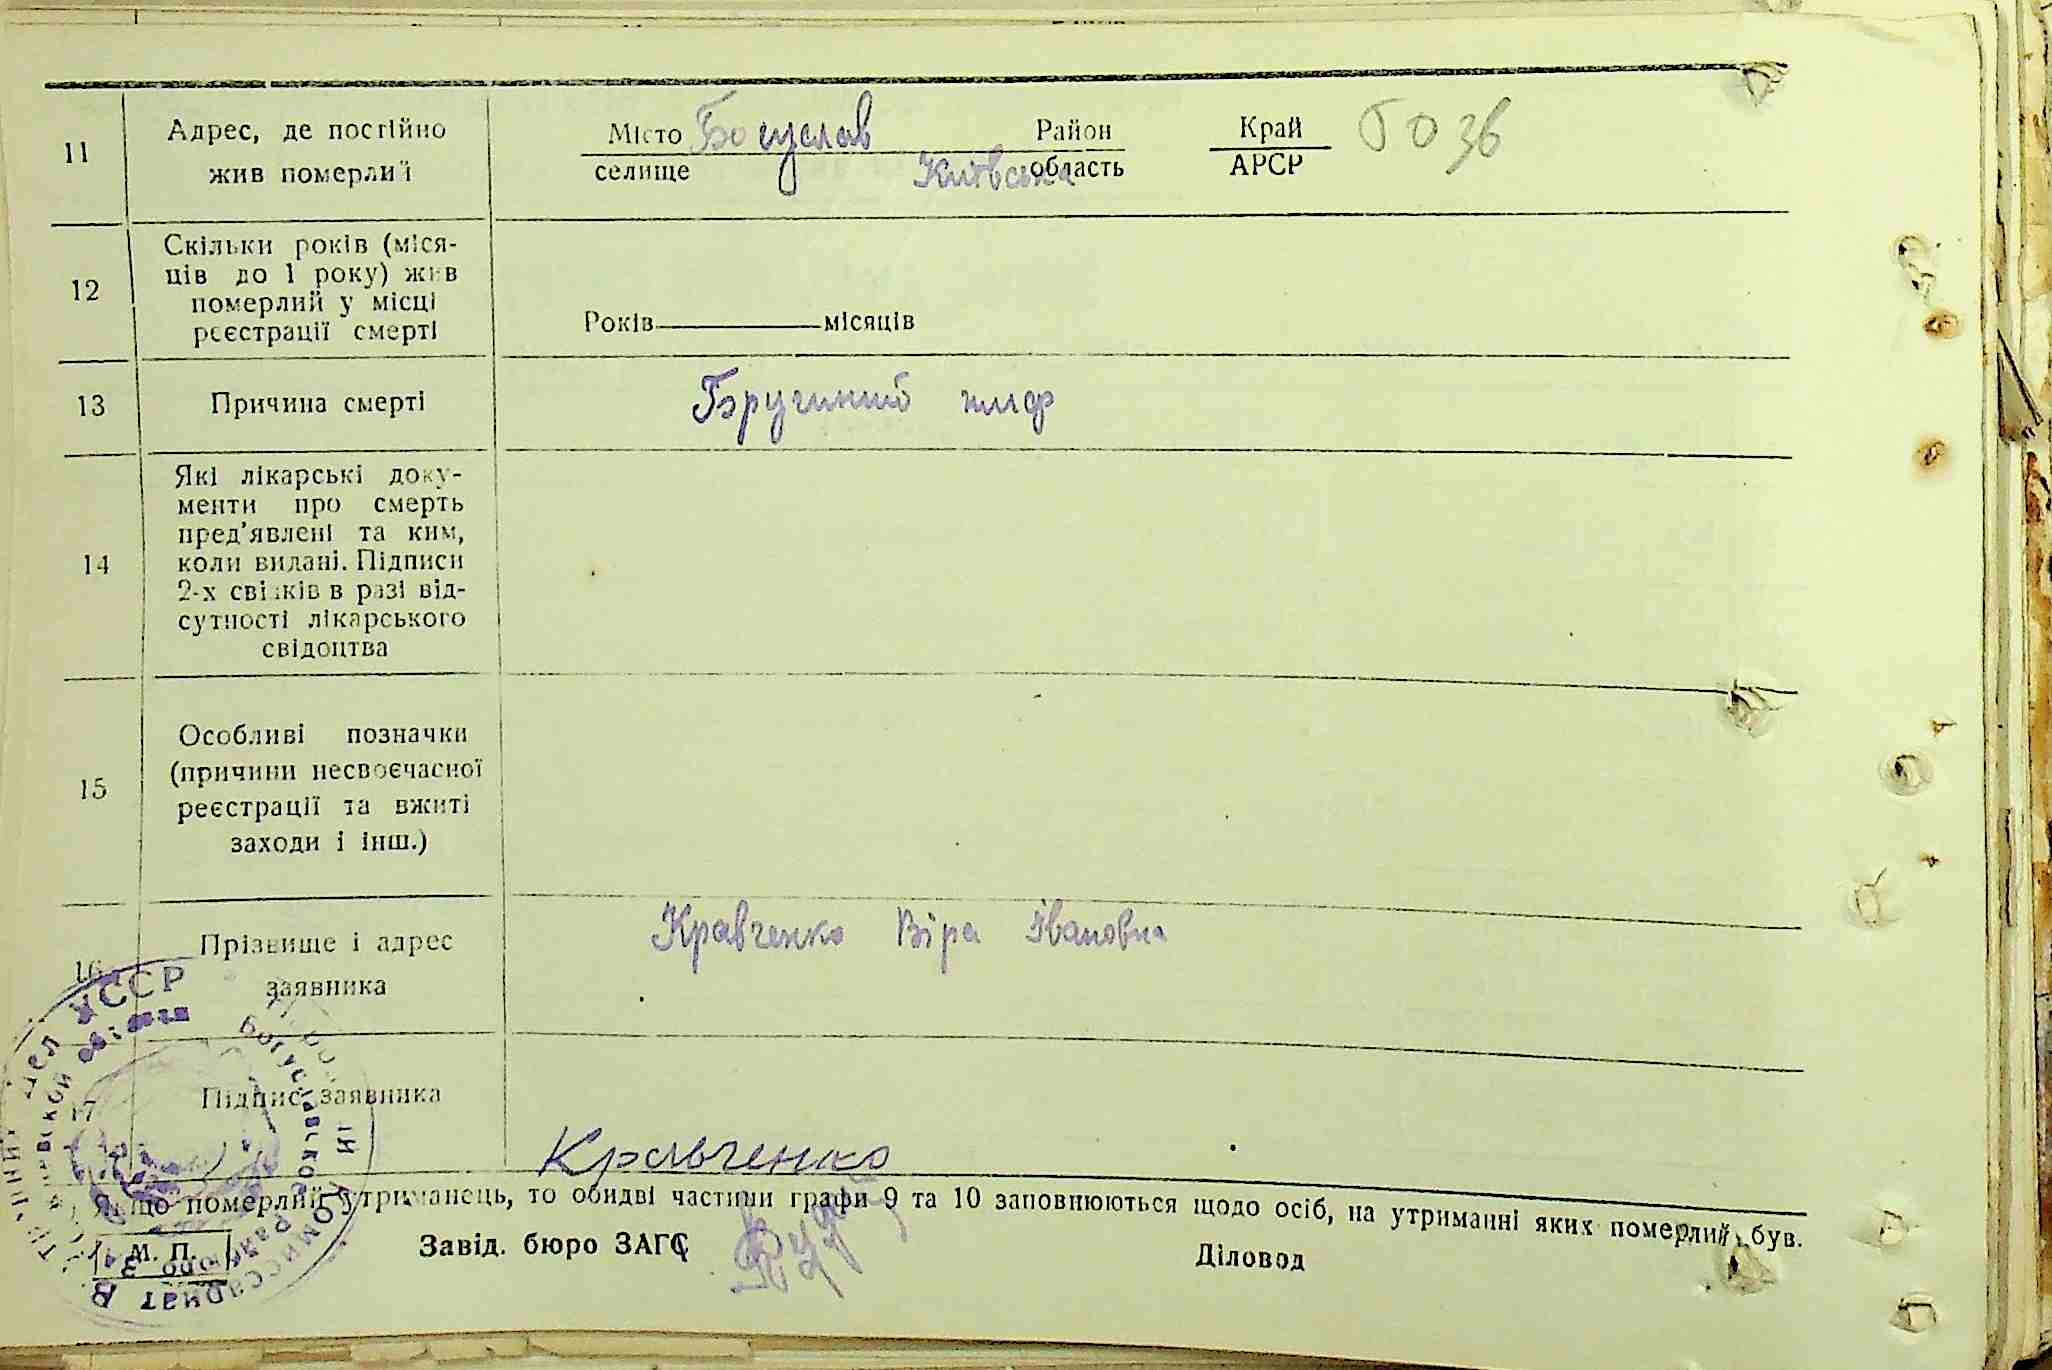 11
Адрес, де постійно
жив померлий
Місто Богуслав Район Край
селище Київська область АРСР
12
Скільки років (міся-
ців до 1 року) жив
померлий у місці
реєстрації смерті
Років місяців
13
Причина смерті
Бручиний тиф
14
Які лікарські доку-
менти про смерть
пред'явлені та ким,
коли видані. Підписи
2-х свідків в разі від-
сутності лікарського
свідоцтва
15
Особливі позначки
(причини несвоєчасної
реєстрації та вжиті
заходи і інш.)
16
Прізвище і адрес
заявника
Кравченко Віра Івановна
17
Підпис заявника
Кравченко
Якщо померлий утриманець, то обидві частини графи 9 та 10 заповнюються щодо осіб, на утриманні яких померлий був.
М. П.
Завід. бюро ЗАГС
Діловод
УССР
Богуславское